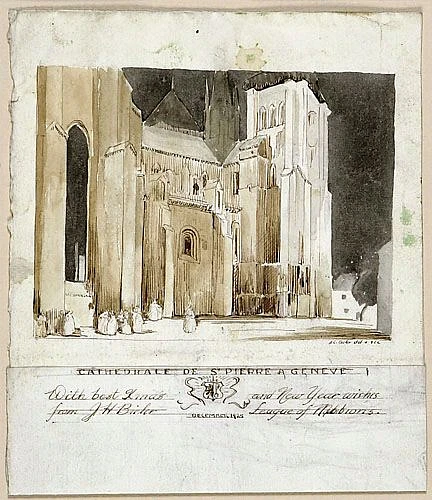 CATHEDRALE DE St PIERRE A GENEVE
With best Xmas and New Year wishes
from J H League of Ribbons.
DECEMBER, 1925